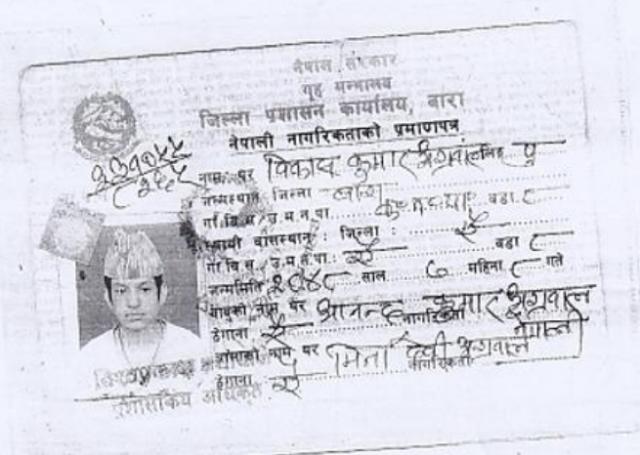 नेपाल सरकार
गृह मन्त्रालय
जिल्ला प्रशासन कार्यालय, बारा
नेपाली नागरिकताको प्रमाणपत्र
नाम थर विकास कुमार अग्रवाल लिङ्ग पु
जन्मस्थान जिल्ला बारा
गा.वि.स./उ.म.न.पा. वडा ८
स्थायी बासस्थान: जिल्ला: ऐ
गा.वि.स./उ.म.न.पा. ऐ वडा ८
जन्ममिति २०४८ साल महिना ८ गते
बाबुको नाम थर आनन्द कुमार अग्रवाल
ठेगाना ऐ नागरिकता नेपाली
आमाको नाम थर मिना देवी अग्रवाल
ठेगाना ऐ नागरिकता
प्रशासकिय अधिकृत